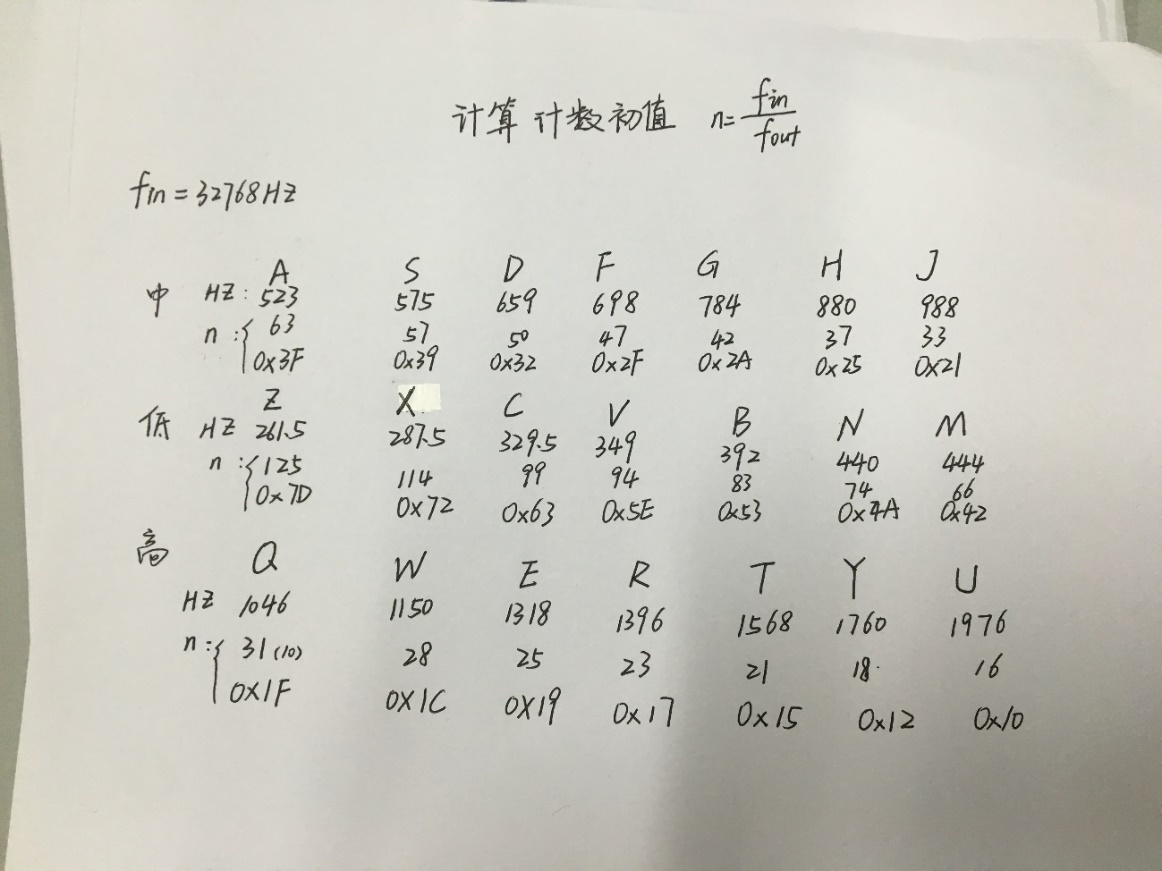 计算 计数初值 n= fin/fout
fin=32768HZ
A S D F G H J
中 HZ: 523 575 659 698 784 880 988
n:{ 63 57 50 47 42 37 33
0x3F 0x39 0x32 0x2F 0x2A 0x25 0x21
Z X C V B N M
低 HZ 261.5 287.5 329.5 349 392 440 444
n:{ 125 114 99 94 83 74 66
0x7D 0x72 0x63 0x5E 0x53 0x4A 0x42
高 Q W E R T Y U
HZ 1046 1150 1318 1396 1568 1760 1976
n:{ 31(10) 28 25 23 21 18 16
0X1F 0X1C 0X19 0x17 0x15 0x12 0x10